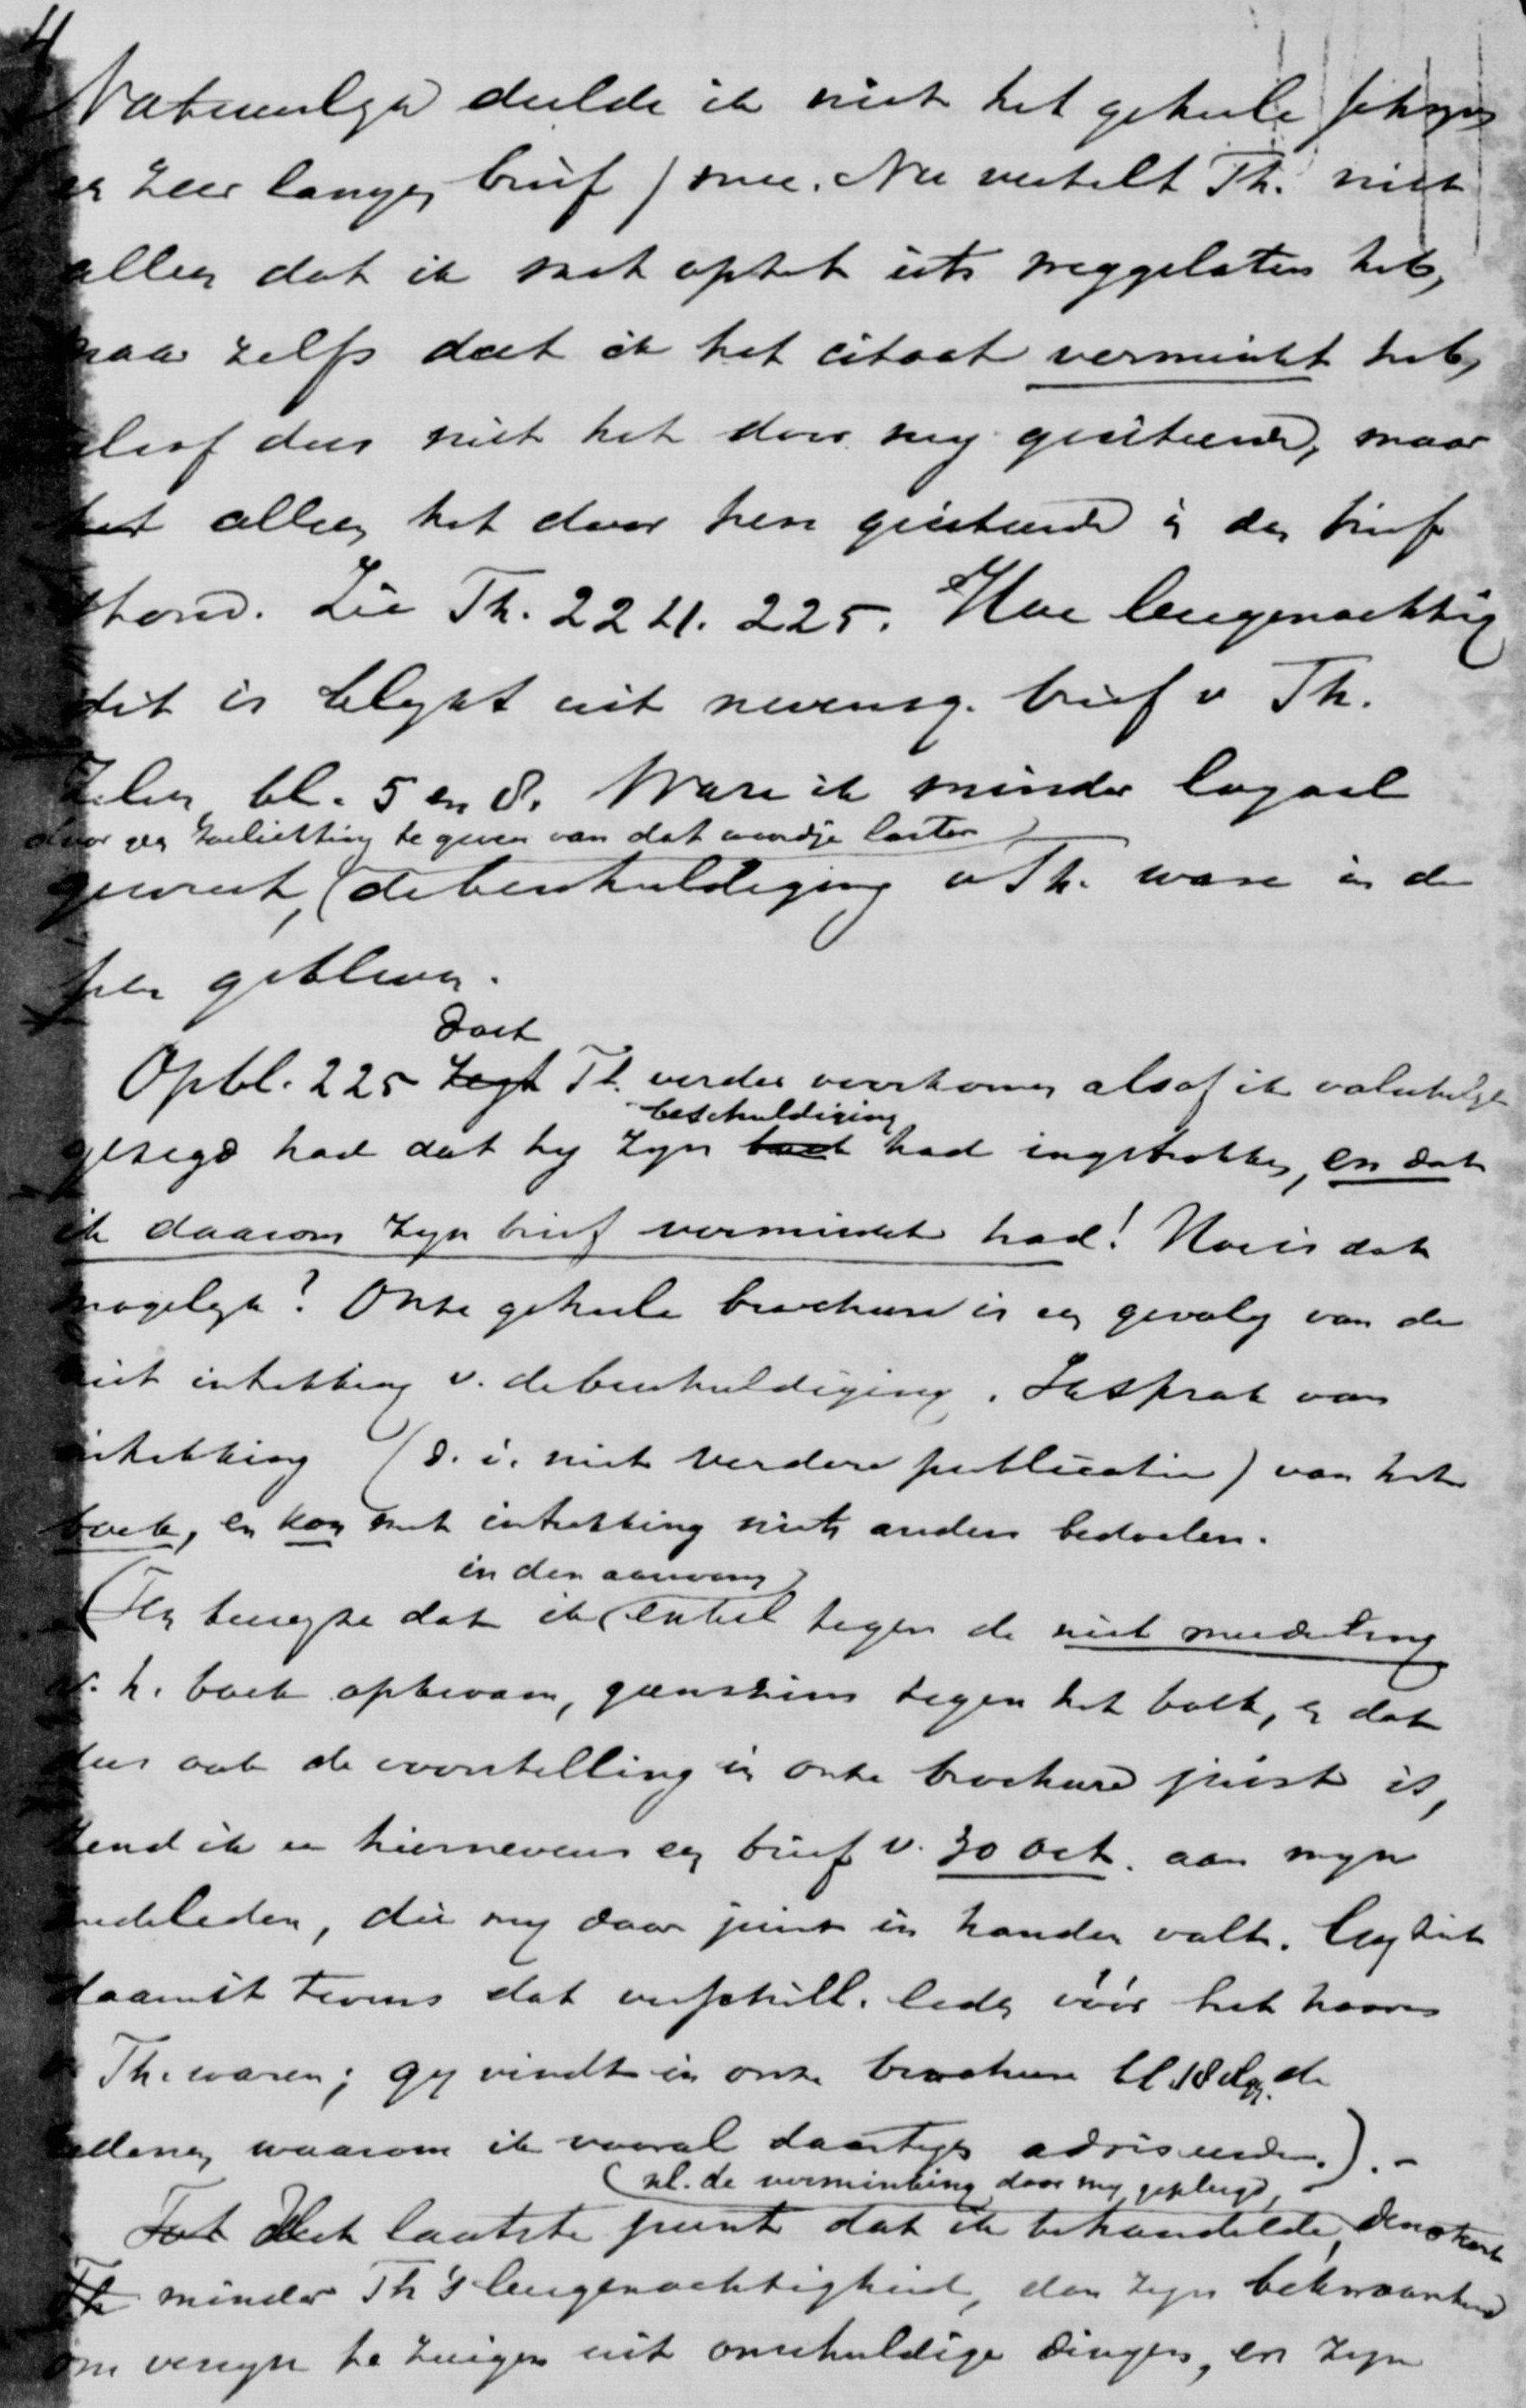 4
Natuurlyk deelde ik niet het geheele schryven
en zeer lange brief) mee. Nu vertelt Th. niet
alleen dat ik met opzet iets weggelaten heb,
maar zelfs dat ik het citaat verminkt heb,
alsof dus niet het door my geciteerde, maar
het alleen het door hem geciteerde in den brief
stond. Zie Th. 224. 225. Hoe leugenachtig
dit is blykt uit nevensg. brief v Th.
Zelven bl. 5 en 8. Ware ik minder loyaal
door een toelichting te geven van dat woordje laster
geweest, (de beschuldiging v Th. ware in de
pen gebleven.
doet
Op bl. 225 zegt Th. verder voorkomen alsof ik valschelyk
beschuldiging
gezegd had dat hy zyn boek had ingetrokken, en dat
ik daarom zyn brief verminkt had! Hoe is dat
mogelyk? Onze geheele brochure is een gevolg van de
niet intrekking v. de beschuldiging. Ik sprak van
intrekking (d. i. niet verdere publicatie) van het
boek, en kon met intrekking niets anders bedoelen.
in den aanvang
(Ten bewyze dat ik (enkel tegen de niet mededeeling
v. h. boek opkwam, geenszins tegen het boek, en dat
dus ook de voorstelling in onze brochure juist is,
zend ik u hiernevens een brief v. 30 Oct. aan myn
medeleden, die my daar juist in handen valt. Gy ziet
daaruit tevens dat verschill. leden vóór het hooren
v Th. waren; gy vindt in onze brochure bl 18 vlgg. de
redenen, waarom ik vooral daartegen adviseerde.). -
(nl. de verminking door my gepleegd,
Tot Het laatste punt dat ik behandelde, kenschetst
Th minder Th's leugenachtigheid, dan zyn bekwaamheid
om venyn te zuigen uit onschuldige dingen, en zyn